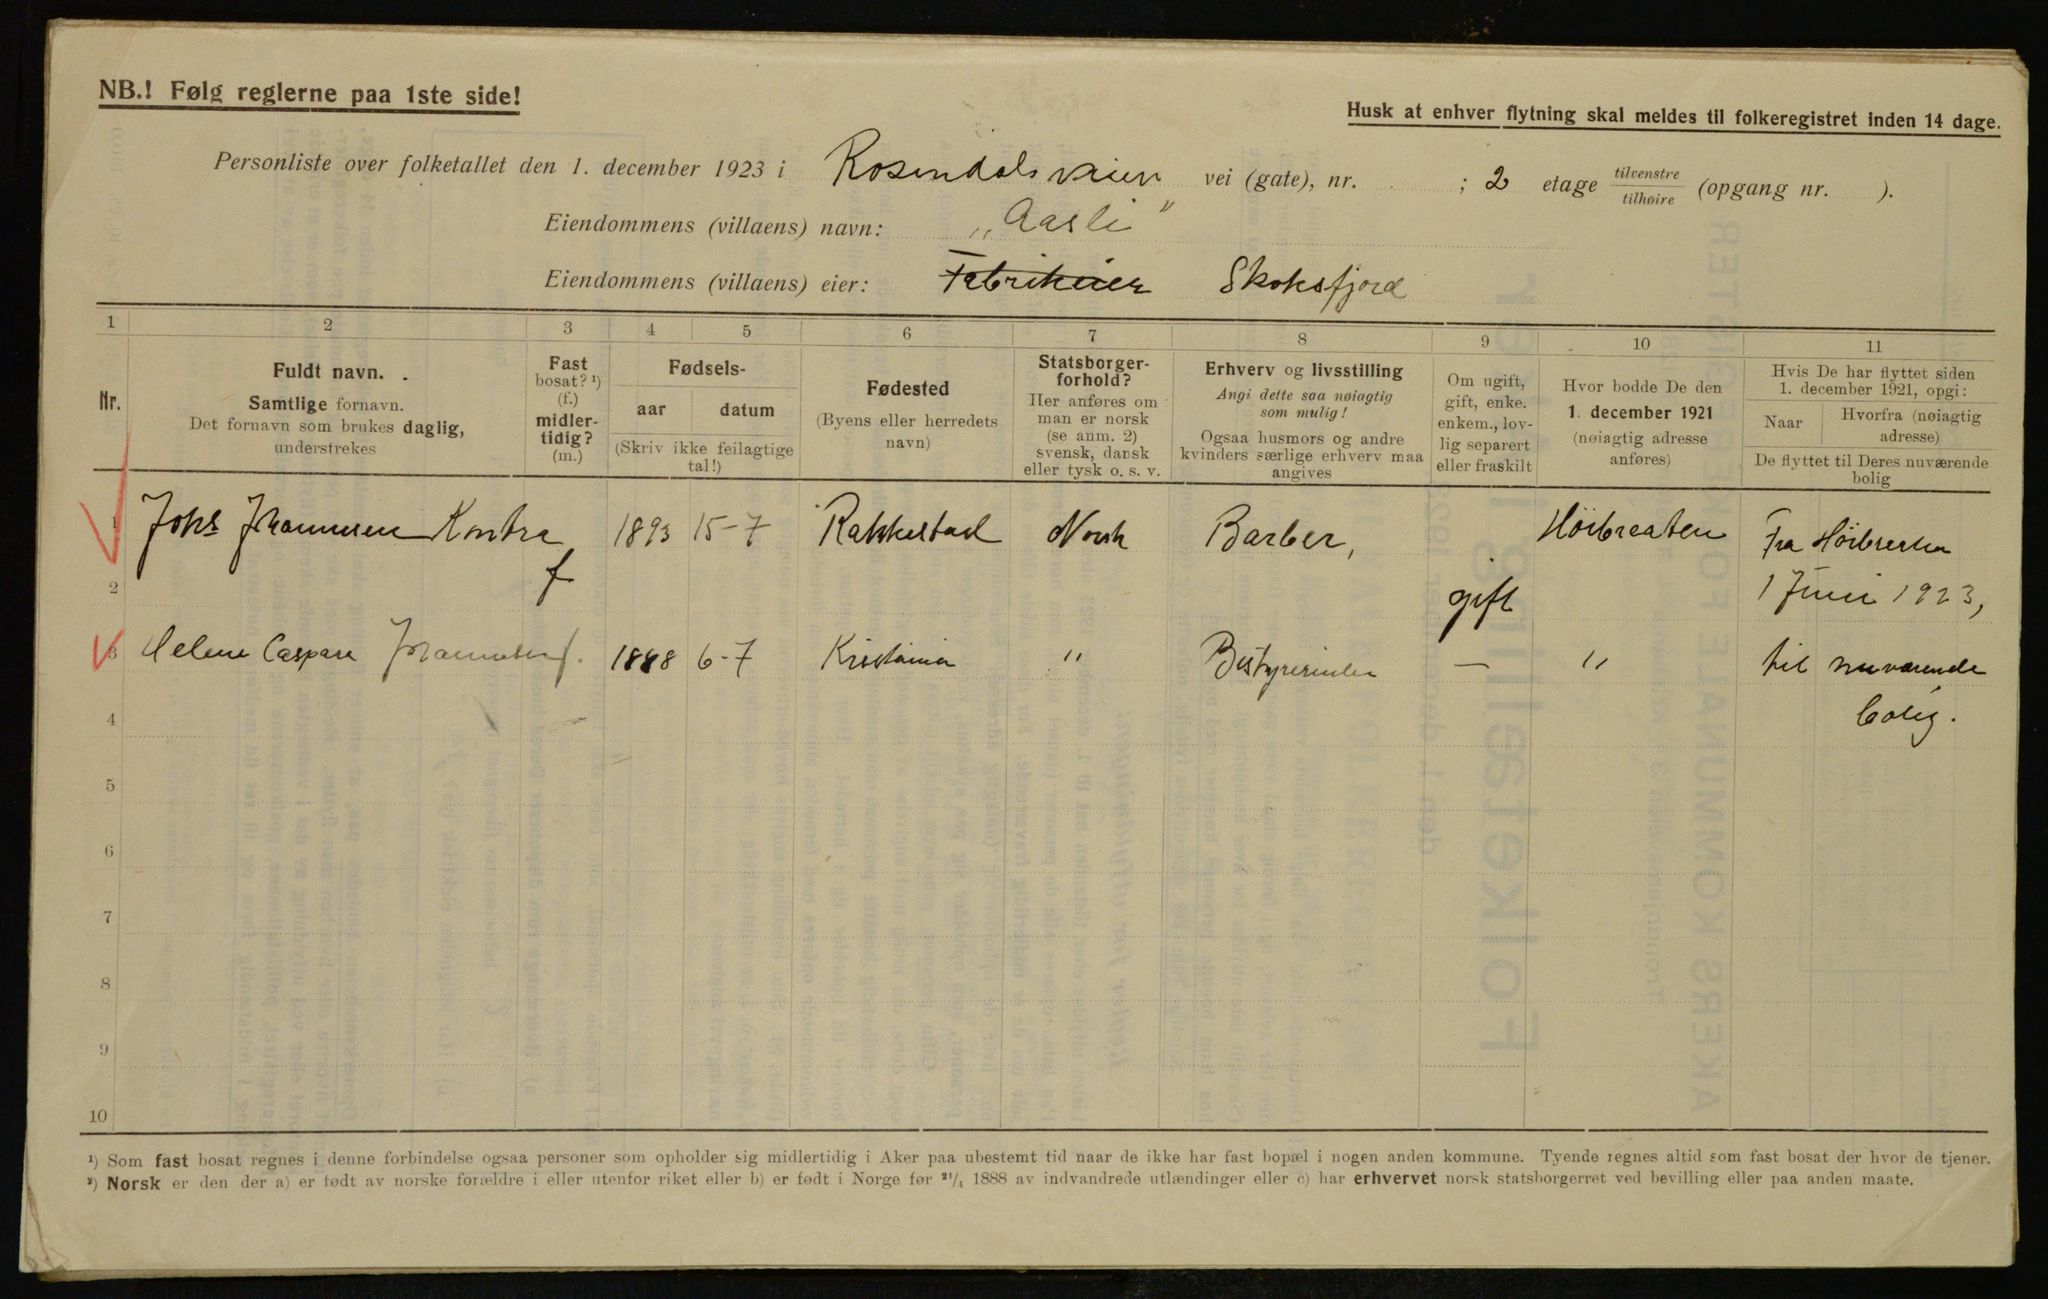 NB.! Følg reglerne paa 1ste side!
Husk at enhver flytning skal meldes til folkeregistret inden 14 dage.
Personliste over folketallet den 1. december 1923 i Rosendalsveien vei (gate), nr. ; 2 etage tilvenstre/tilhøire (opgang nr. ).
Eiendommens (villaens) navn: „Aasli"
Eiendommens (villaens) eier: Fabrikeier Skoksfjord
1 2 3 4 5 6 7 8 9 10 11
Nr.
Fuldt navn.
Samtlige fornavn.
Det fornavn som brukes daglig,
understrekes
Fast
bosat? ¹)
(f.)
midler-
tidig?
(m.)
Fødsels-
aar datum
(Skriv ikke feilagtige
tal!)
Fødested
(Byens eller herredets
navn)
Statsborger-
forhold?
Her anføres om
man er norsk
(se anm. 2)
svensk, dansk
eller tysk o. s. v.
Erhverv og livsstilling
Angi dette saa nøiagtig
som mulig!
Ogsaa husmors og andre
kvinders særlige erhverv maa
angives
Om ugift,
gift, enke.
enkem., lov-
lig separert
eller fraskilt
Hvor bodde De den
1. december 1921
(nøiagtig adresse
anføres)
Hvis De har flyttet siden
1. december 1921, opgi:
Naar Hvorfra (nøiagtig
adresse)
De flyttet til Deres nuværende
bolig
1 Johs Johannesen 1893 15-7 Rakkestad Norsk Barber, Høibraaten Fra Høibraaten
2 f gift 1 Juni 1923,
3 Helene Caspara Johannesen f. 1888 6-7 Kristiania " Bestyrerinde — " til nuværende
4 bolig.
5
6
7
8
9
10
¹) Som fast bosat regnes i denne forbindelse ogsaa personer som opholder sig midlertidig i Aker paa ubestemt tid naar de ikke har fast bopæl i nogen anden kommune. Tyende regnes altid som fast bosat der hvor de tjener.
²) Norsk er den der a) er født av norske forældre i eller utenfor riket eller b) er født i Norge før ²¹/₄ 1888 av indvandrede utlændinger eller c) har erhvervet norsk statsborgerret ved bevilling eller paa anden maate.